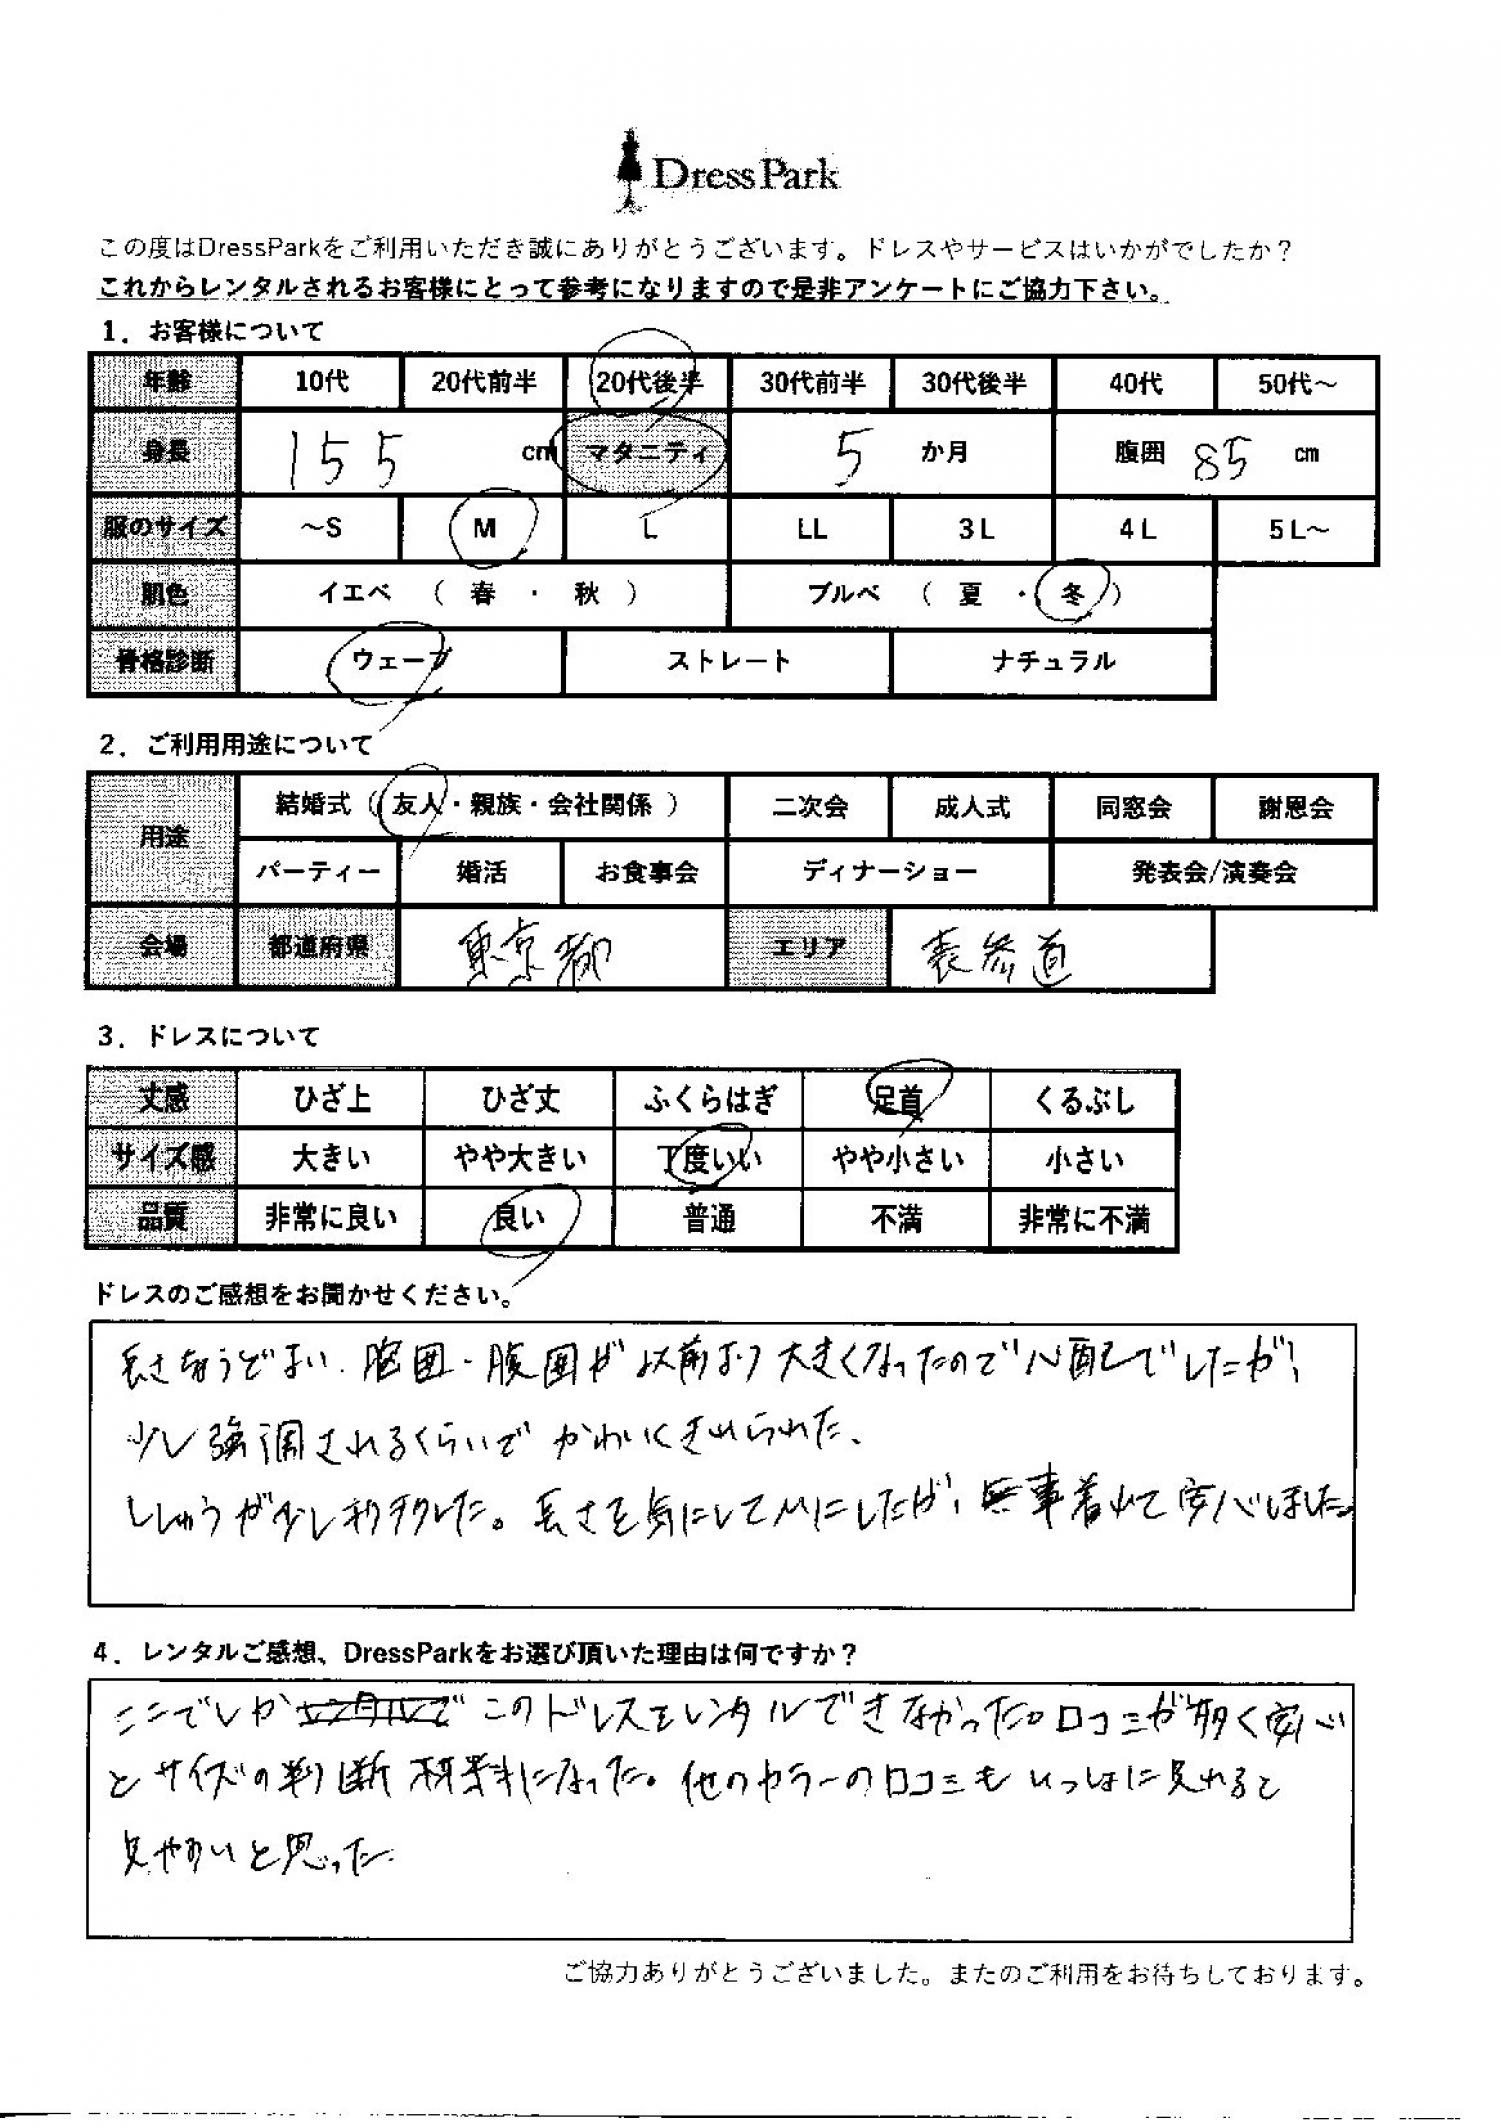 DressPark
この度はDressParkをご利用いただき誠にありがとうございます。ドレスやサービスはいかがでしたか？
これからレンタルされるお客様にとって参考になりますので是非アンケートにご協力下さい。
1．お客様について
年齢 10代 20代前半 20代後半 30代前半 30代後半 40代 50代～
身長 155 cm マタニティ 5 か月 腹囲 85 cm
服のサイズ ～S M L LL 3L 4L 5L～
肌色 イエベ （ 春 ・ 秋 ） ブルベ （ 夏 ・ 冬 ）
骨格診断 ウェーブ ストレート ナチュラル
2．ご利用用途について
用途 結婚式（ 友人・親族・会社関係 ） 二次会 成人式 同窓会 謝恩会
パーティー 婚活 お食事会 ディナーショー 発表会/演奏会
会場 都道府県 東京都 エリア 表参道
3．ドレスについて
丈感 ひざ上 ひざ丈 ふくらはぎ 足首 くるぶし
サイズ感 大きい やや大きい 丁度いい やや小さい 小さい
品質 非常に良い 良い 普通 不満 非常に不満
ドレスのご感想をお聞かせください。
長さちょうどよい、胸囲・腹囲が以前より大きくなったので心配でしたが、
少し強調されるくらいでかわいくきれられた、
ししゅうが少しチクチクした。長さを気にしてMにしたが、無事着れて安心しました。
4．レンタルご感想、DressParkをお選び頂いた理由は何ですか？
ここでしかこのドレスをレンタルできなかった。口コミが多く安心
とサイズの判断材料になった。他のカラーの口コミもいっしょに見れると
見やすいと思った
ご協力ありがとうございました。またのご利用をお待ちしております。